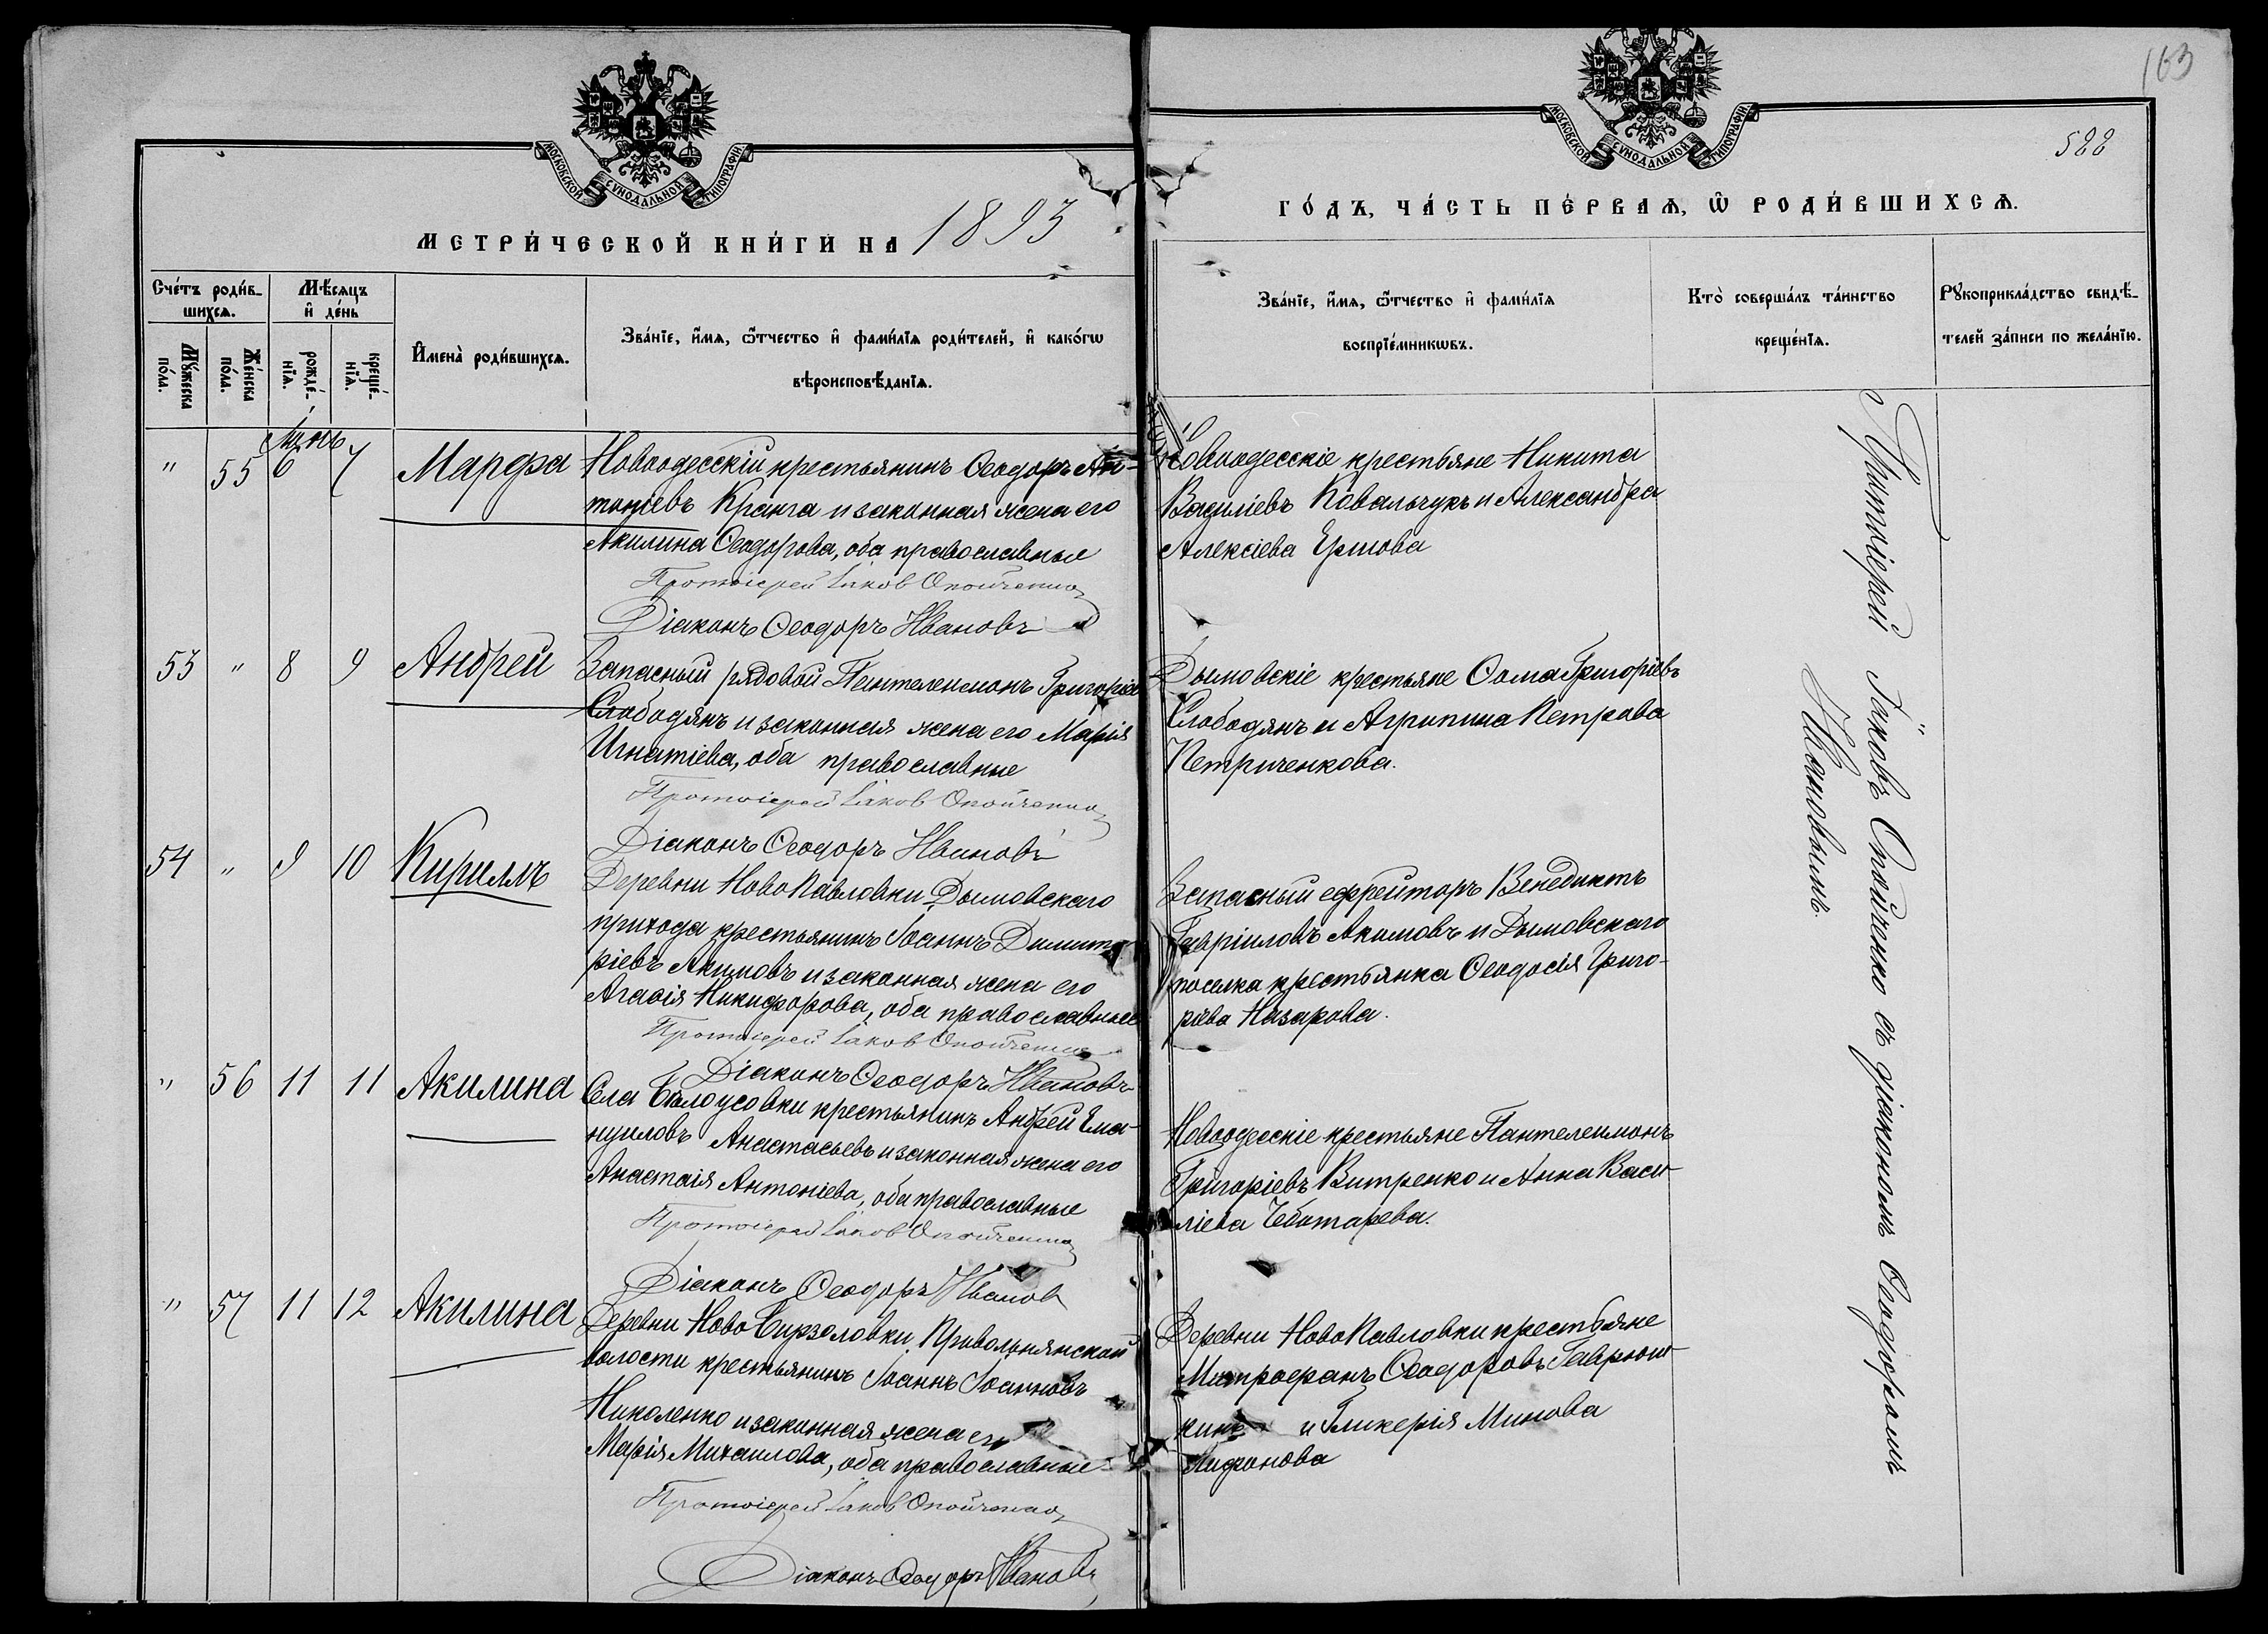 163
588
МОСКОВСКОЙ СѴНОДАЛЬНОЙ ТИПОГРАФІИ
МОСКОВСКОЙ СѴНОДАЛЬНОЙ ТИПОГРАФІИ
МЕТРИ́ЧЕСКОЙ КНИ́ГИ НА 1893
ГО́ДЪ, ЧА́СТЬ ПЕ́РВАѦ, Ѡ҆ РОДИ́ВШИХСѦ.
Сче́тъ роди́в-
шихсѧ.
Мѣ́сѧцъ
и҆ де́нь
Мꙋ́жеска
по́ла.
Же́нска
по́ла.
рожде́-
нїѧ.
креще́-
нїѧ.
И҆мена̀ роди́вшихсѧ.
Зва́нїе, и҆́мѧ, ѻ҆́тчество и҆ фами́лїѧ роди́телей, и҆ како́гѡ
вѣроисповѣ́данїѧ.
Зва́нїе, и҆́мѧ, ѻ҆́тчество и҆ фами́лїѧ
воспрїе́мникѡвъ.
Кто̀ соверша́лъ та́инство
креще́нїѧ.
Рꙋкоприкла́дство свидѣ́-
телей за́писи по жела́нїю.
Іюнь
" 55 6 7 Марфа
Новоодесскій крестьянинъ Ѳеодоръ Ан-
тоніевъ Кранга и законная жена его
Акилина Ѳеодорова, оба православные
Протоіерей Іаков Опойченко
Діаконъ Ѳеодоръ Ивановъ
Новоодесскіе крестьяне Никита
Василіевъ Ковальчукъ и Александра
Алексіева Ершова
53 " 8 9 Андрей
Запасный рядовой Пантелеимонъ Григоріев
Слободянъ и законная жена его Марія
Игнатіева, оба православные
Протоіерей Іаков Опойченко
Діаконъ Ѳеодоръ Ивановъ
Дымовскіе крестьяне Ѳома Григоріевъ
Слободянъ и Агрипина Петрова
Петриченкова.
54 " 9 10 Кириллъ
Деревни НовоПавловки Дымовскаго
прихода крестьянинъ Іоаннъ Димит
ріевъ Акимовъ и законная жена его
Агаѳія Никифорова, оба православные
Протоіерей Іаков Опойченко
Діаконъ Ѳеодоръ Ивановъ
Запасный ефрейторъ Венедиктъ
Гавріиловъ Акимовъ и Дымовскаго
поселка крестьянка Ѳеодосія Григо-
ріева Назарова.
" 56 11 11 Акилина
Села Бѣлоусовки крестьянинъ Андрей Ема-
нуиловъ Анастасьевъ и законная жена его
Анастаія Антоніева, оба православные
Протоіерей Іаков Опойченко
Діаконъ Ѳеодоръ Иванов
Новоодесскіе крестьяне Пантелеимонъ
Григоріевъ Витренко и Анна Васи-
ліева Чеботарева.
" 57 11 12 Акилина
Деревни НовоБирзоловки, Привольнянской
волости крестьянинъ Іоаннъ Іоанновъ
Николенко и законная жена его
Марія Михаилова, оба православные
Протоіерей Іаков Опойченко
Діаконъ Ѳеодоръ Ивановъ
Деревни НовоПавловки крестьяне
Митрофанъ Ѳеодоровъ Гаврюш-
кинъ и Гликерія Минова
Протоіерей Іаковъ Опойченко съ діакономъ Ѳеодоромъ
Ивановымъ.